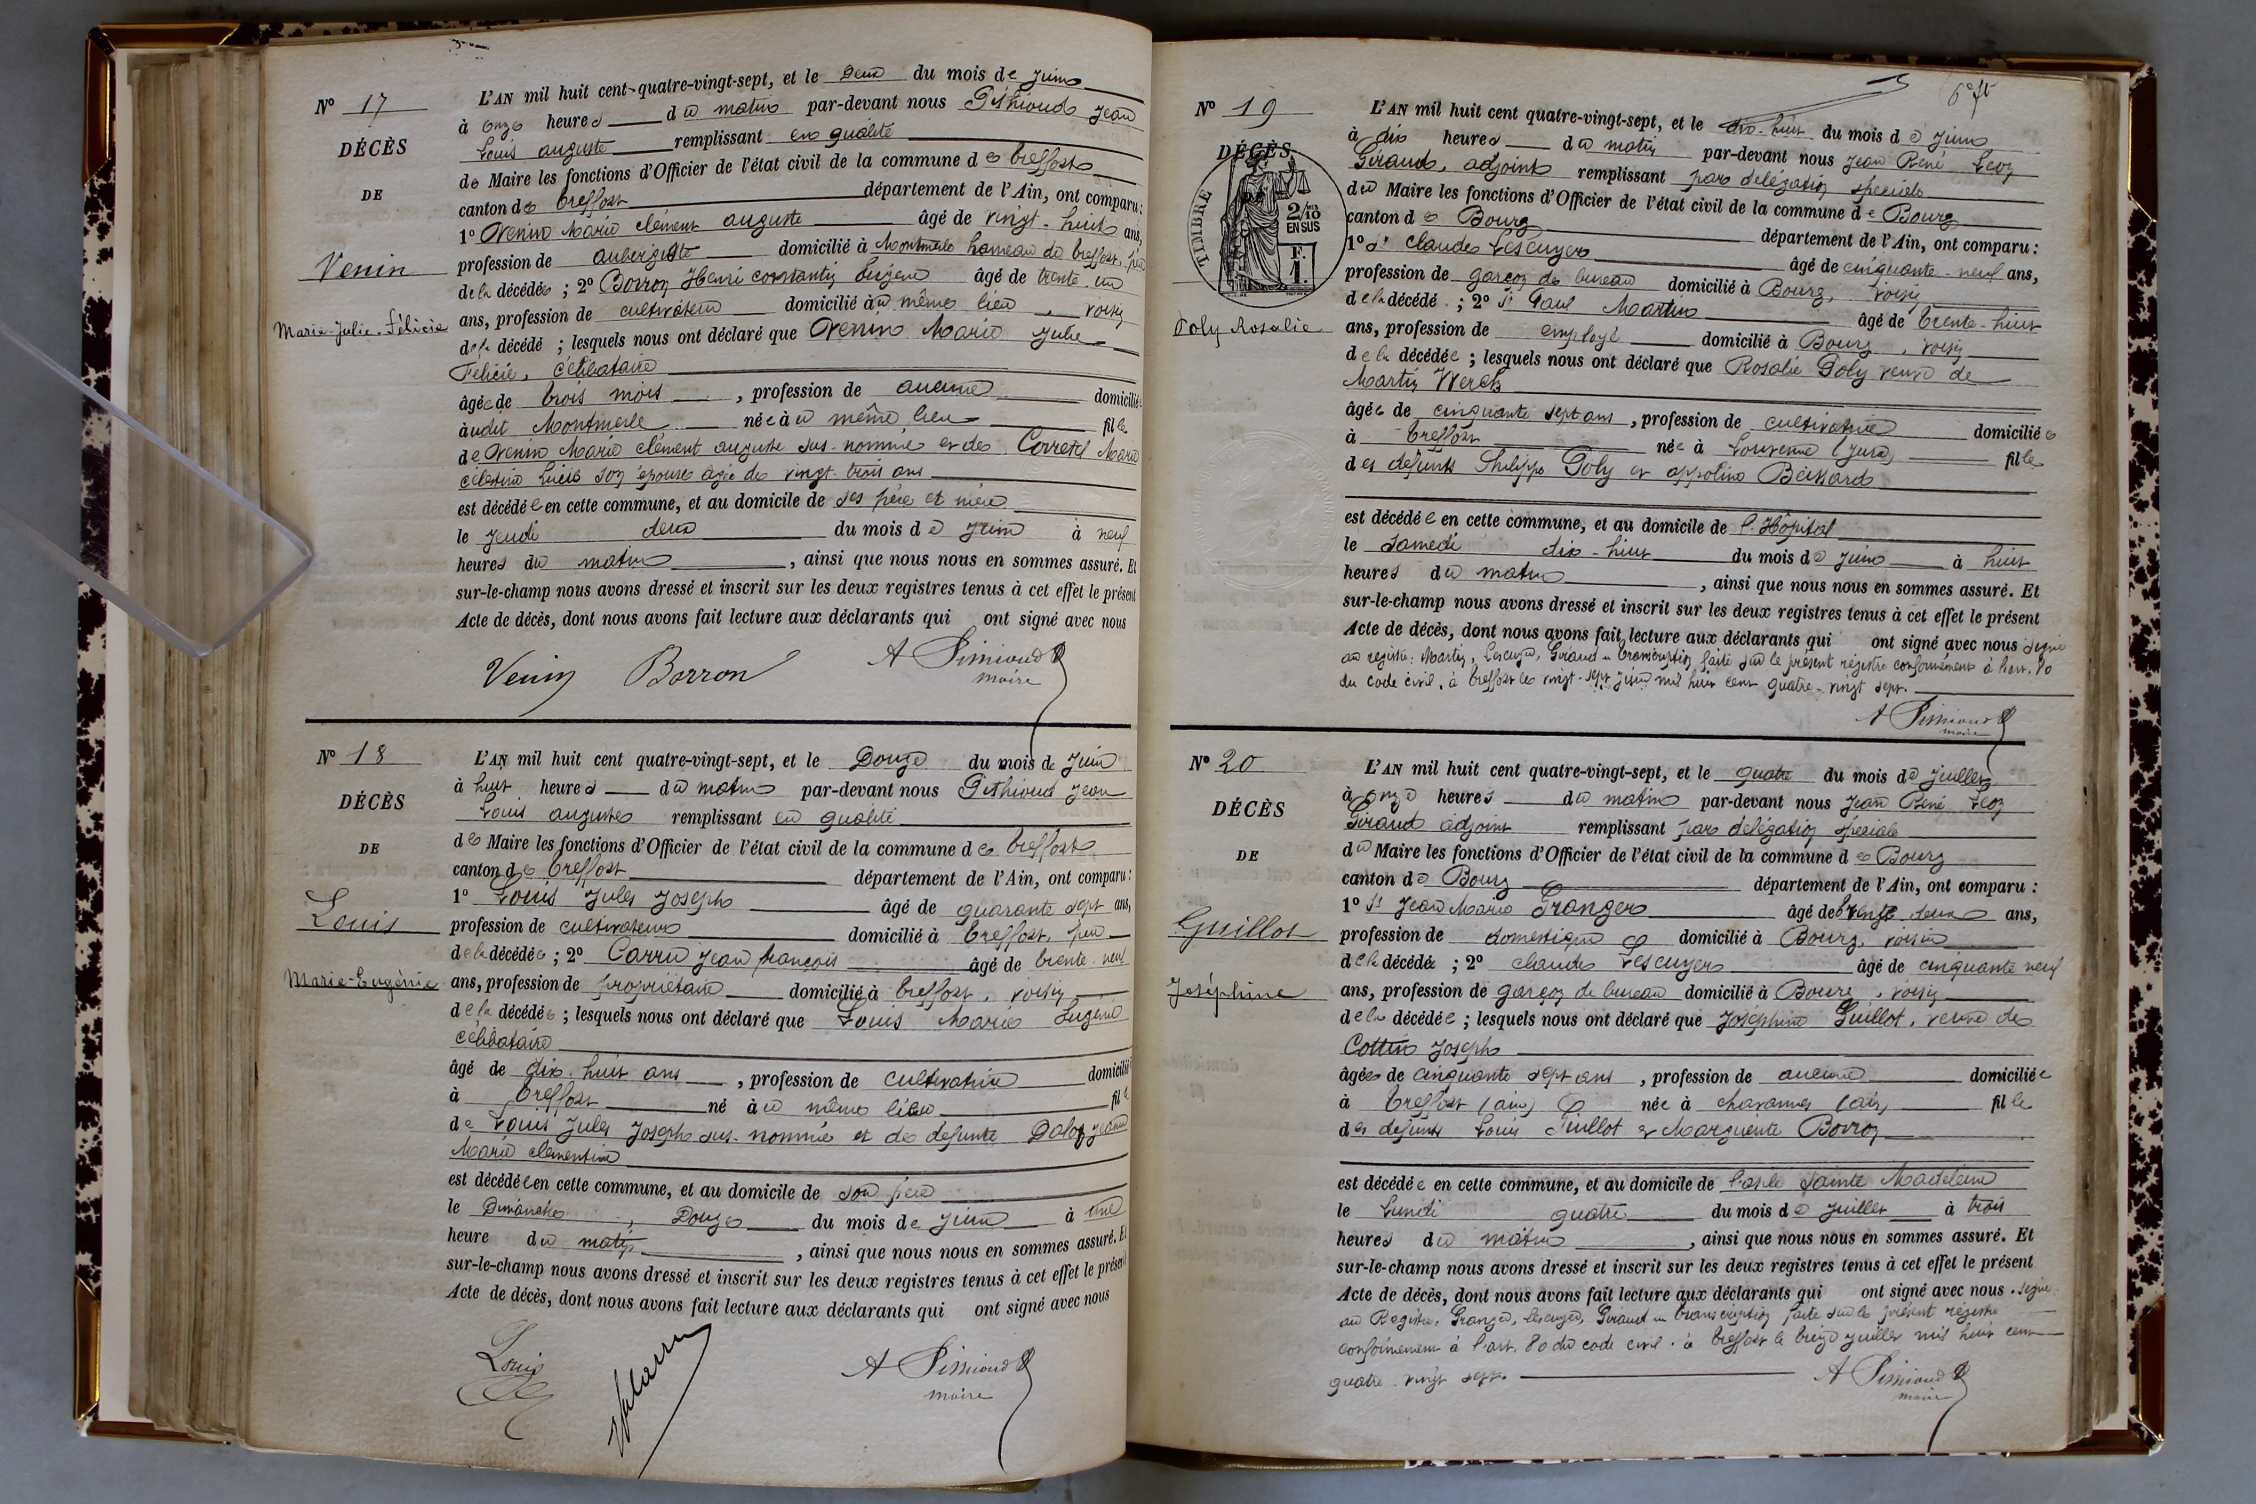 N° 17
DÉCÈS
DE
Venin
Marie-Julie-Félicie
L'AN mil huit cent quatre-vingt-sept, et le deux du mois de Juin
à onze heures du matin par-devant nous Pithioud Jean
Louis auguste remplissant en qualité
de Maire les fonctions d'Officier de l'état civil de la commune de treffort
canton de treffort département de l'Ain, ont comparu :
1° Venin Marie clément auguste âgé de vingt-huit ans,
profession de aubergiste domicilié à Montmerle hameau de treffort, père
de la décédée ; 2° Borron Henri constantin Eugène âgé de trente-un
ans, profession de cultivateur domicilié au même lieu, voisin
de la décédé ; lesquels nous ont déclaré que Venin Marie Julie
Félicie, célibataire
âgée de trois mois, profession de aucune domiciliée
audit Montmerle née à u même lieu fille
de Venin Marie clément auguste sus-nommé et de Corretel Marie
célestine Lucie son épouse âgée de vingt-trois ans
est décédée en cette commune, et au domicile de ses père et mère
le Jeudi deux du mois de Juin à neuf
heures du matin, ainsi que nous nous en sommes assuré. Et
sur-le-champ nous avons dressé et inscrit sur les deux registres tenus à cet effet le présent
Acte de décès, dont nous avons fait lecture aux déclarants qui ont signé avec nous
Venin Borron
maire
N° 18
DÉCÈS
DE
Louis
Marie-Eugènie
L'AN mil huit cent quatre-vingt-sept, et le Douze du mois de Juin
à huit heures du matin par-devant nous Pithioud Jean
Louis auguste remplissant en qualité
de Maire les fonctions d'Officier de l'état civil de la commune de treffort
canton de treffort département de l'Ain, ont comparu :
1° Louis Jules Joseph âgé de quarante sept ans,
profession de cultivateur domicilié à treffort, père
de la décédée ; 2° Carru Jean françois âgé de trente-neuf
ans, profession de propriétaire domicilié à treffort, voisin
de la décédée ; lesquels nous ont déclaré que Louis Marie Eugénie
célibataire
âgé de dix-huit ans, profession de cultivatrice domicilié
à treffort né à u même lieu fille
de Louis Jules Joseph sus-nommé et de defunte Jeanne
Marie clementine
est décédée en cette commune, et au domicile de son père
le Dimanche, Douze du mois de Juin à une
heure du matin, ainsi que nous nous en sommes assuré. Et
sur-le-champ nous avons dressé et inscrit sur les deux registres tenus à cet effet le présent
Acte de décès, dont nous avons fait lecture aux déclarants qui ont signé avec nous
Louis
maire
N° 19
DÉCÈS
TIMBRE
2/10
EN SUS
F.
1.
Poly Rosalie
L'AN mil huit cent quatre-vingt-sept, et le dix-huit du mois de Juin
à dix heures du matin par-devant nous Jean René Léon
Giraud, adjoint remplissant par délégation spéciale
du Maire les fonctions d'Officier de l'état civil de la commune de Bourg
canton de Bourg département de l'Ain, ont comparu :
1° Sr claude Lescuyer âgé de cinquante-neuf ans,
profession de garçon de bureau domicilié à Bourg, voisin
de la décédé ; 2° Sr Paul Martin âgé de trente-huit
ans, profession de employé domicilié à Bourg, voisin
de la décédée ; lesquels nous ont déclaré que Rosalie Poly veuve de
Martin
âgée de cinquante sept ans, profession de cultivatrice domiciliée
à treffort née à Louvenne (Jura) fille
des defunts Philippe Poly et appoline
est décédée en cette commune, et au domicile de l'Hôpital
le Samedi dix-huit du mois de Juin à huit
heures du matin, ainsi que nous nous en sommes assuré. Et
sur-le-champ nous avons dressé et inscrit sur les deux registres tenus à cet effet le présent
Acte de décès, dont nous avons fait lecture aux déclarants qui ont signé avec nous signé
au registre: Martin, Lescuyer, Giraud. transcription faite sur le présent registre conformément à l'art. 80
du code civil, à treffort le vingt-sept Juin mil huit cent quatre-vingt sept.
maire
N° 20
DÉCÈS
DE
Guillot
Joséphine
L'AN mil huit cent quatre-vingt-sept, et le quatre du mois de Juillet
à onze heures du matin par-devant nous Jean René Léon
Giraud adjoint remplissant par délégation spéciale
du Maire les fonctions d'Officier de l'état civil de la commune de Bourg
canton de Bourg département de l'Ain, ont comparu :
1° Sr Jean Marie Granger âgé de trente deux ans,
profession de domestique domicilié à Bourg, voisin
de la décédée ; 2° claude Lescuyer âgé de cinquante neuf
ans, profession de garçon de bureau domicilié à Bourg, voisin
de la décédée ; lesquels nous ont déclaré que Joséphine Guillot, veuve de
Cottin Joseph
âgée de cinquante sept ans, profession de aucune domiciliée
à treffort (ain) née à chavannes (ain) fille
des defunts Louis Guillot et Marguerite Borron
est décédée en cette commune, et au domicile de l'asile Sainte Madeleine
le Lundi quatre du mois de Juillet à trois
heures du matin, ainsi que nous nous en sommes assuré. Et
sur-le-champ nous avons dressé et inscrit sur les deux registres tenus à cet effet le présent
Acte de décès, dont nous avons fait lecture aux déclarants qui ont signé avec nous. signé
au Registre, Granger, Lescuyer, Giraud. transcription faite sur le présent registre
conformément à l'art. 80 du code civil. à treffort le treize Juillet mil huit cent
quatre-vingt sept.
maire